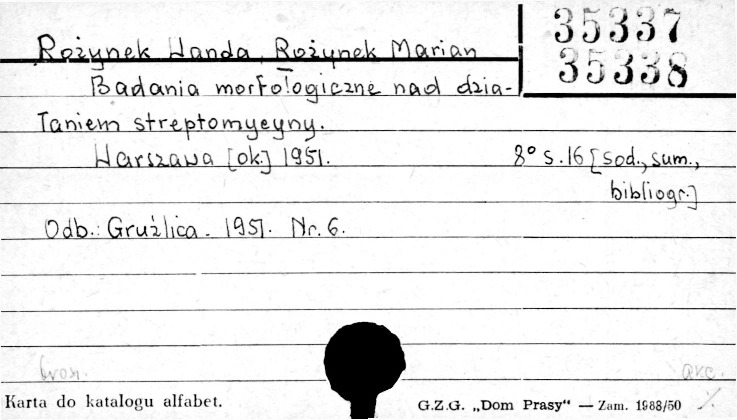 35337
35338
Rożynek Wanda, Rożynek Marian
Badania morfologiczne nad dzia-
łaniem streptomycyny.
Warszawa [ok.] 1951. 8° s. 16 [sod., sum.,
bibliogr.]
Odb.: Gruźlica. 1951. Nr. 6.
brosz. akc.
Karta do katalogu alfabet. G.Z.G. „Dom Prasy“ — Zam. 1988/50